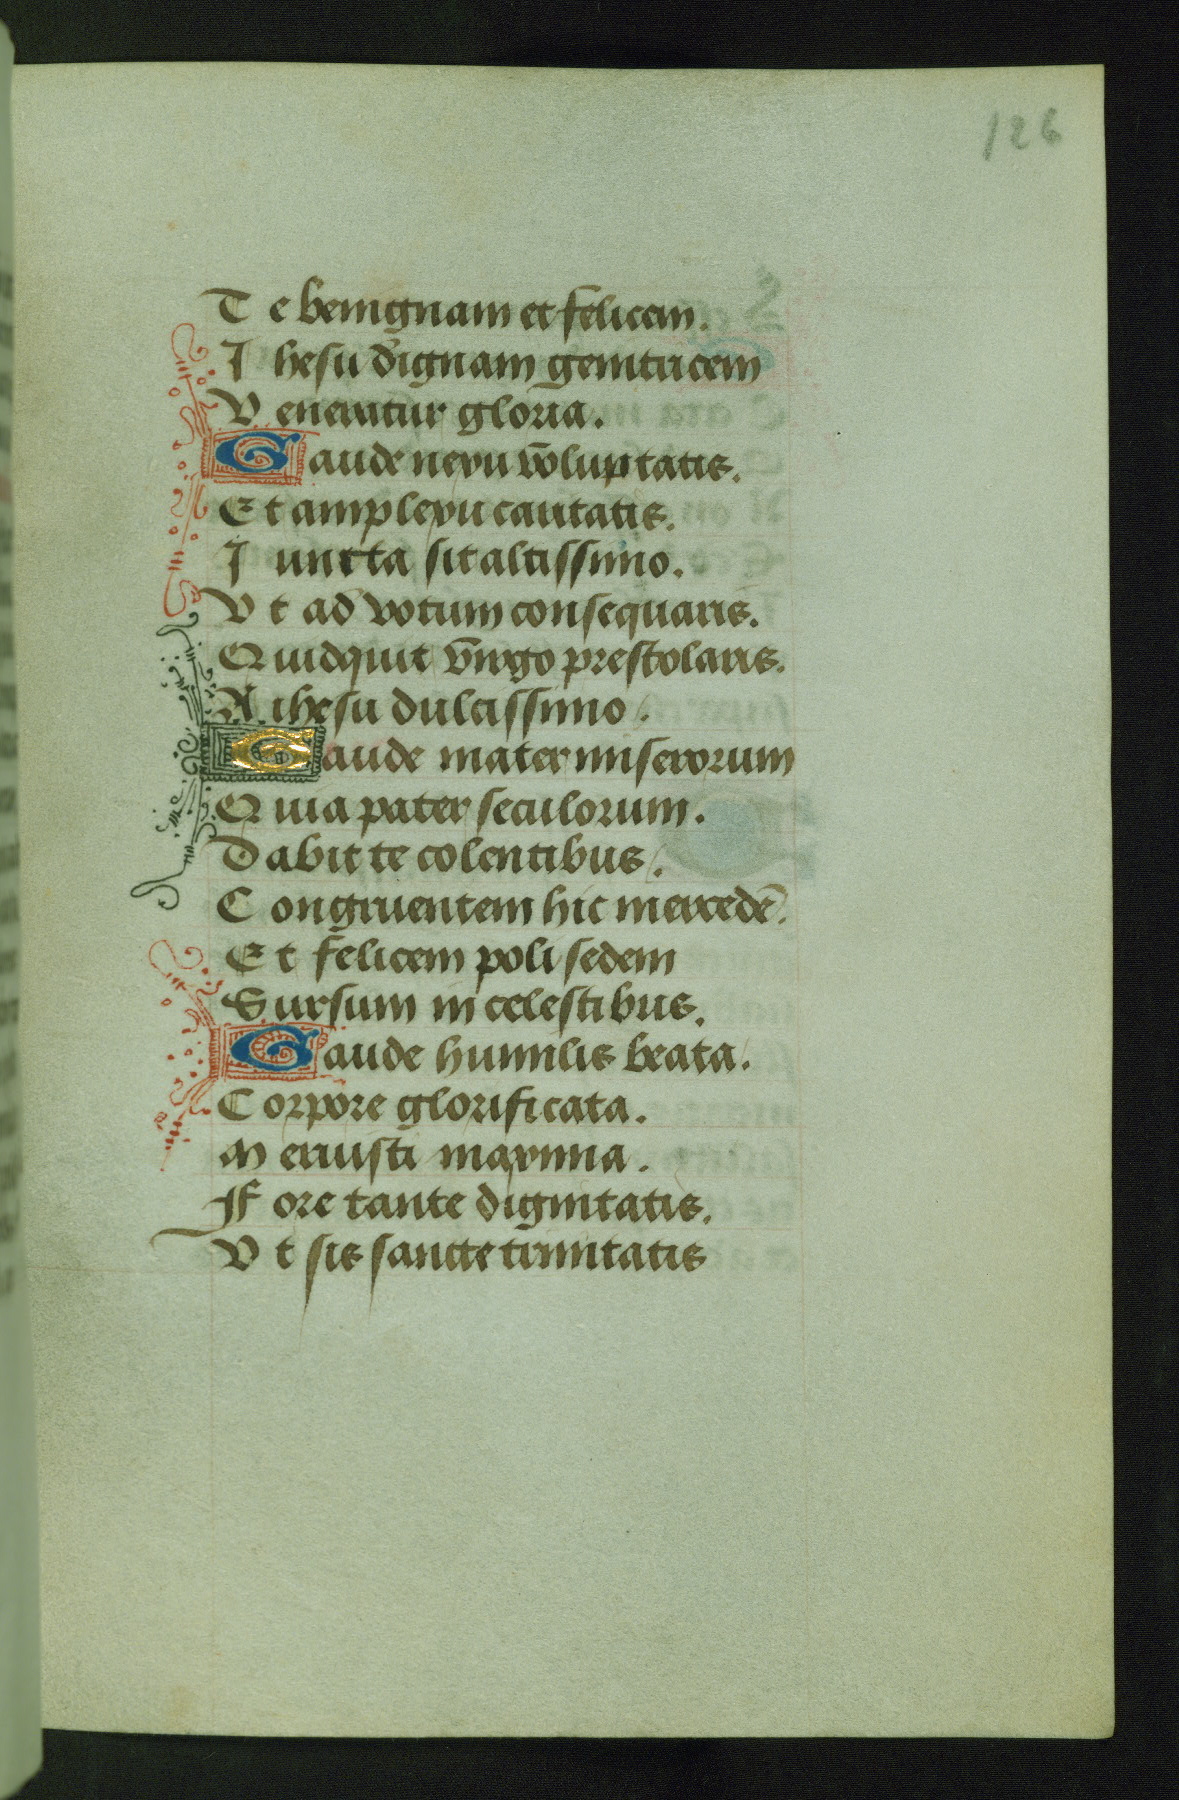 126
Te benignam et felicem.
Ihesu dignam genitricem
Veneratur gloria.
Gaude nexu voluptatis.
Et amplexu caritatis.
Iuncta sit altissimo.
Vt ad votum consequaris.
Quidquit virgo prestolaris.
A ihesu dulcissimo.
Gaude mater miserorum
Quia pater seculorum.
Dabit te colentibus.
Congruentem hic mercedē.
Et felicem poli sedem
Sursum in celestibus.
Gaude humilis beata.
Corpore glorificata.
Meruisti maxima.
Fore tante dignitatis.
Vt sis sancte trinitatis